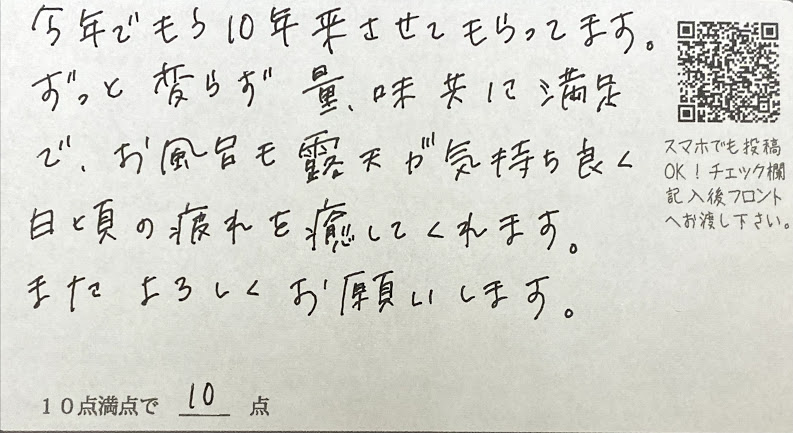 今年でもう10年来させてもらってます。
ずっと変らず量、味共に満足
で、お風呂も露天が気持ち良く
日と頃の疲れを癒してくれます。
またよろしくお願いします。
スマホでも投稿
OK！チェック欄
記入後フロント
へお渡し下さい。
10点満点で 10 点